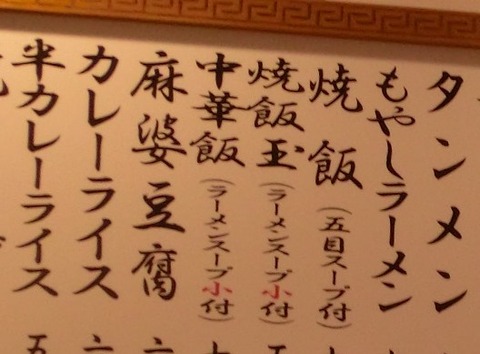 タンメン
もやしラーメン
焼飯(五目スープ付)
焼飯玉(ラーメンスープ小付)
中華飯(ラーメンスープ小付)
麻婆豆腐
カレーライス
半カレーライス